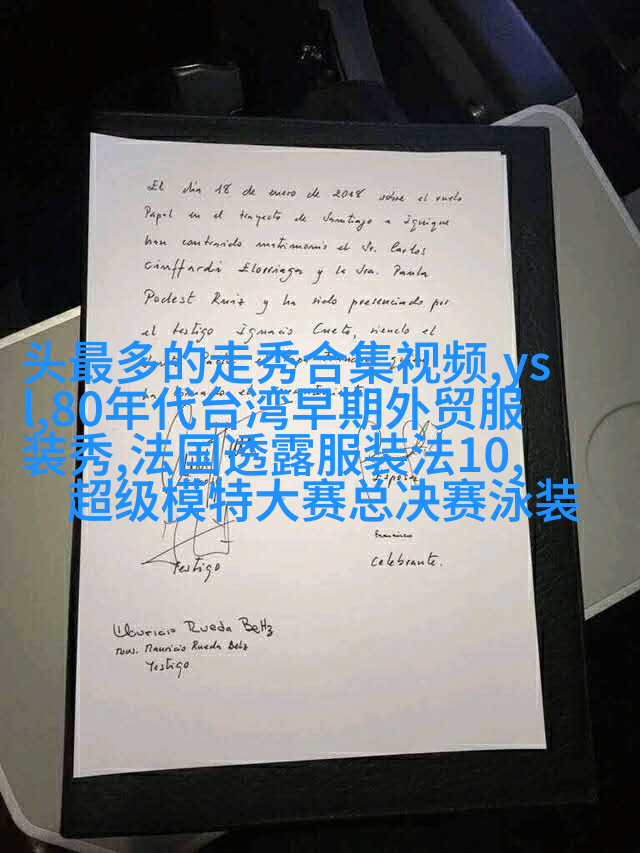 El día 18 de enero de 2018 sobre el vuelo
Papal en el trayecto de Santiago a Iquique
han contraido matrimonio el Sr. Carlos
Ciuffardi Elorriaga y la Sra. Paula
Podest Ruiz y ha sido presenciado por
el testigo Ignacio Cueto, siendo el
头最多的走秀合集视频,ys
l,80年代台湾早期外贸服
装秀,法国透露服装法10,
超级模特大赛总决赛泳装
Franciscus
Testigo
Celebrante.
Mauricio Rueda Beltz
Mons. Mauricio Rueda Beltz
Testigo